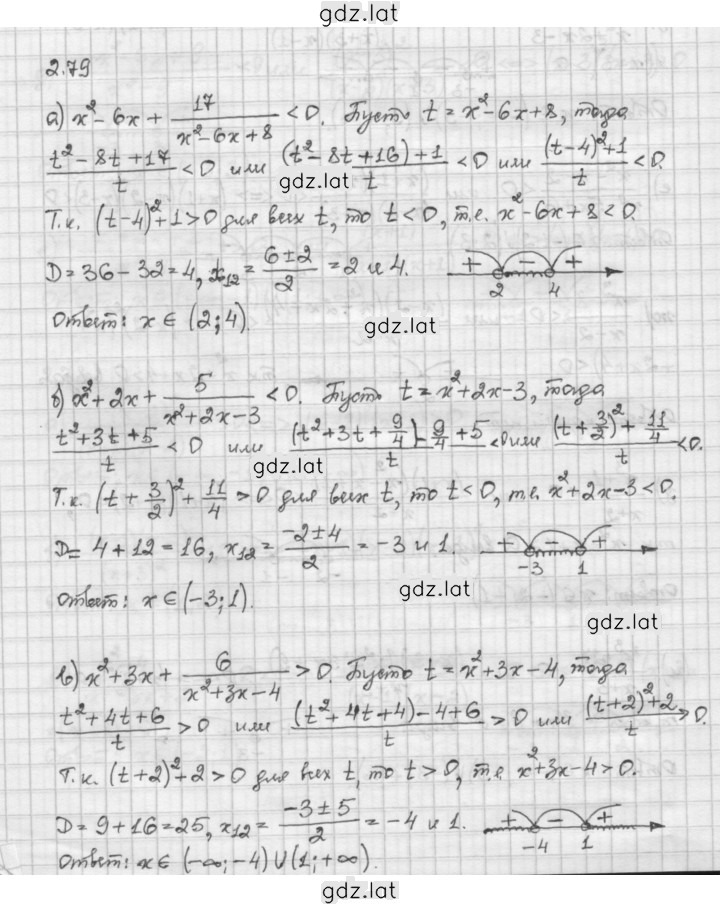 gdz.lat
2.79
а) x² − 6x + 17/(x² − 6x + 8) < 0. Пусть t = x² − 6x + 8, тогда
(t² − 8t + 17)/t < 0 или ((t² − 8t + 16) + 1)/t < 0 или ((t − 4)² + 1)/t < 0.
gdz.lat
Т.к. (t − 4)² + 1 > 0 для всех t, то t < 0, т.е. x² − 6x + 8 < 0.
D = 36 − 32 = 4, x₁₂ = (6 ± 2)/2 = 2 и 4. + − + 2 4
Ответ: x ∈ (2; 4).
gdz.lat
б) x² + 2x + 5/(x² + 2x − 3) < 0. Пусть t = x² + 2x − 3, тогда
(t² + 3t + 5)/t < 0 или ((t² + 3t + 9/4) − 9/4 + 5)/t < 0 или ((t + 3/2)² + 11/4)/t < 0.
gdz.lat
Т.к. (t + 3/2)² + 11/4 > 0 для всех t, то t < 0, т.е. x² + 2x − 3 < 0.
D = 4 + 12 = 16, x₁₂ = (−2 ± 4)/2 = −3 и 1. + − + −3 1
gdz.lat
Ответ: x ∈ (−3; 1).
gdz.lat
в) x² + 3x + 6/(x² + 3x − 4) > 0. Пусть t = x² + 3x − 4, тогда
(t² + 4t + 6)/t > 0 или ((t² + 4t + 4) − 4 + 6)/t > 0 или ((t + 2)² + 2)/t > 0.
Т.к. (t + 2)² + 2 > 0 для всех t, то t > 0, т.е. x² + 3x − 4 > 0.
D = 9 + 16 = 25, x₁₂ = (−3 ± 5)/2 = −4 и 1. + − + −4 1
Ответ: x ∈ (−∞; −4) ∪ (1; +∞).
gdz.lat